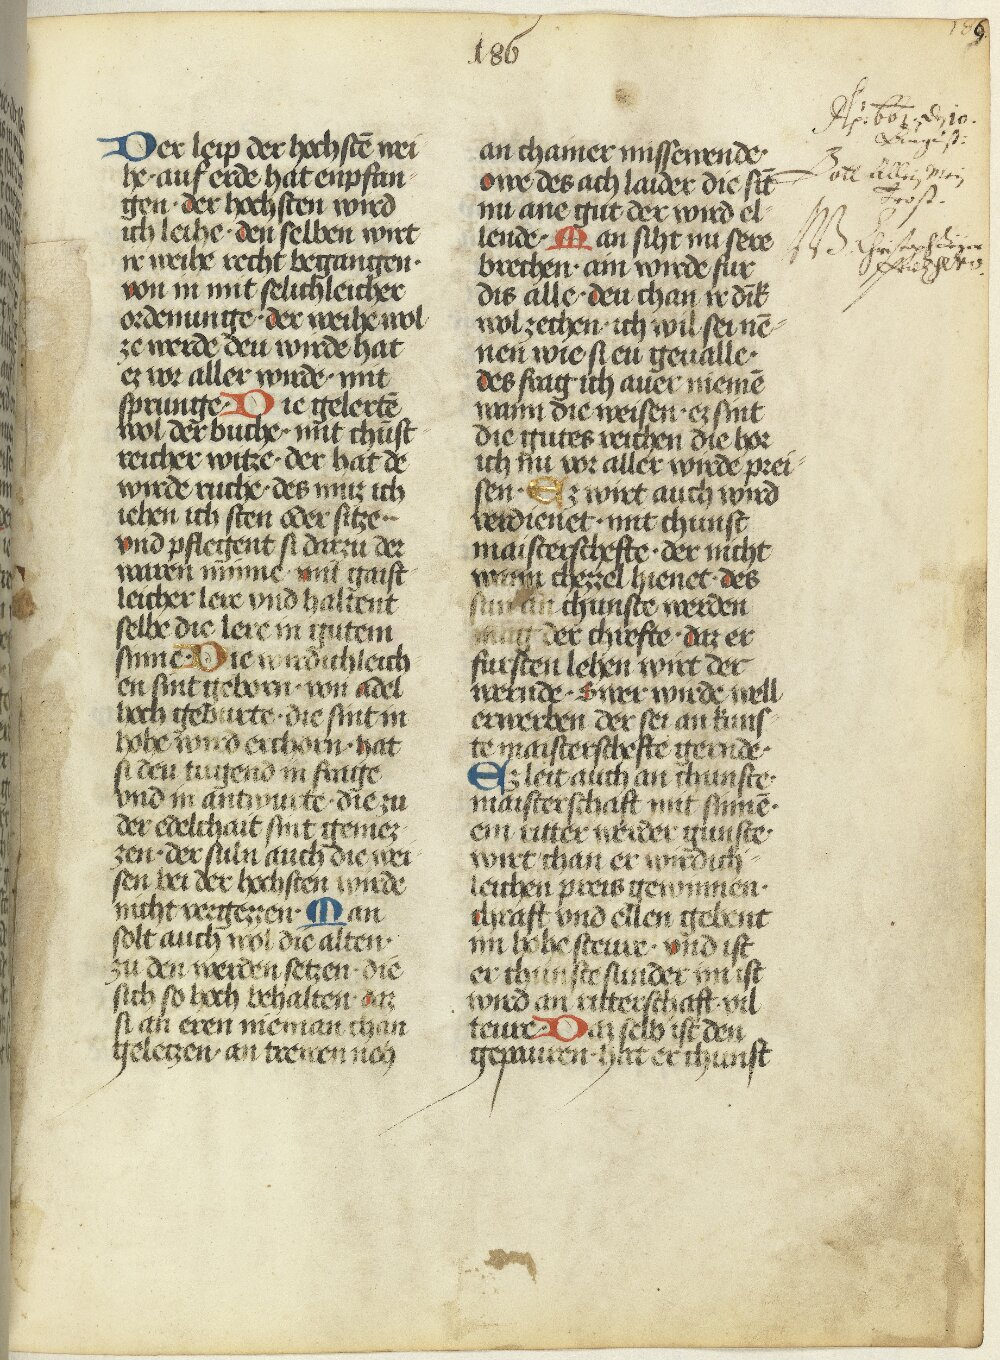 186
186
Der leip der hochstē wei
he · auf erde hat enpfan-
gen · der hochsten wird
ich leihe · den selben wirt
ir weihe recht begangen ·
von in mit selichleicher
ordenunge · der weihe wol
ze werde deu wirde hat
er vor aller wirde · mit
sprunge · Die gelertē
wol der buche · mit chūst
reicher witze · der hat de
wirde ruche · des muz ich
iehen ich sten oder sitze ·
vnd pflegent si darzu der
waren minne · mit gaist
leicher lere vnd haltent
selbe die lere in gutem
sinne · Die wirdichleich
en sint geborn · von adel
hoch geburte · die sint in
hohe wird erchorn · hat
si deu tugend in frage
vnd in antwurte · die zu
der edelchait sint gemez
zen · der suln auch die wei
sen bei der hochsten wirde
nicht vergezzen · Man
solt auch wol die alten ·
zu den werden setzen · die
sich so hoch behalten · daz
si an eren nieman chan
geletzen · an trewen noch
an chainer missewende ·
owe des ach laider die sīt
nu ane gut der wird el-
lende · Man siht nu sere
brechen · ain wirde fur
dis alle · deu chan ir dīk
wol zechen · ich wil sei nē-
nen wie si eu geualle ·
des frag ich auer niemē
wann die weisen · ez sint
die gutes reichen die hor
ich nu vor aller wirde prei-
sen · Ez wirt auch wird
verdienet · mit chunst
maisterschefte · der nicht
wann chezzel hienet · des
sun an chunste werden
mag der chrefte · daz er
fursten lehen wirt der
wernde · Swer wirde well
erwerben der sei an kuns-
te maisterschefte gernde ·
Ez leit auch an chunste ·
maisterschaft mit sinnē ·
ein ritter werder gunste ·
wirt chan er wirdich-
leichen preis gewinnen ·
chraft vnd ellen gebent
im hohe steure · vnd ist
er chunste sunder im ist
wird an ritterschaft vil
teure · Daz selb ist den
gepauren · hat er chunst